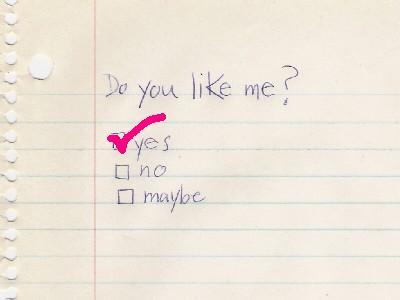 Do you like me?
yes
no
maybe